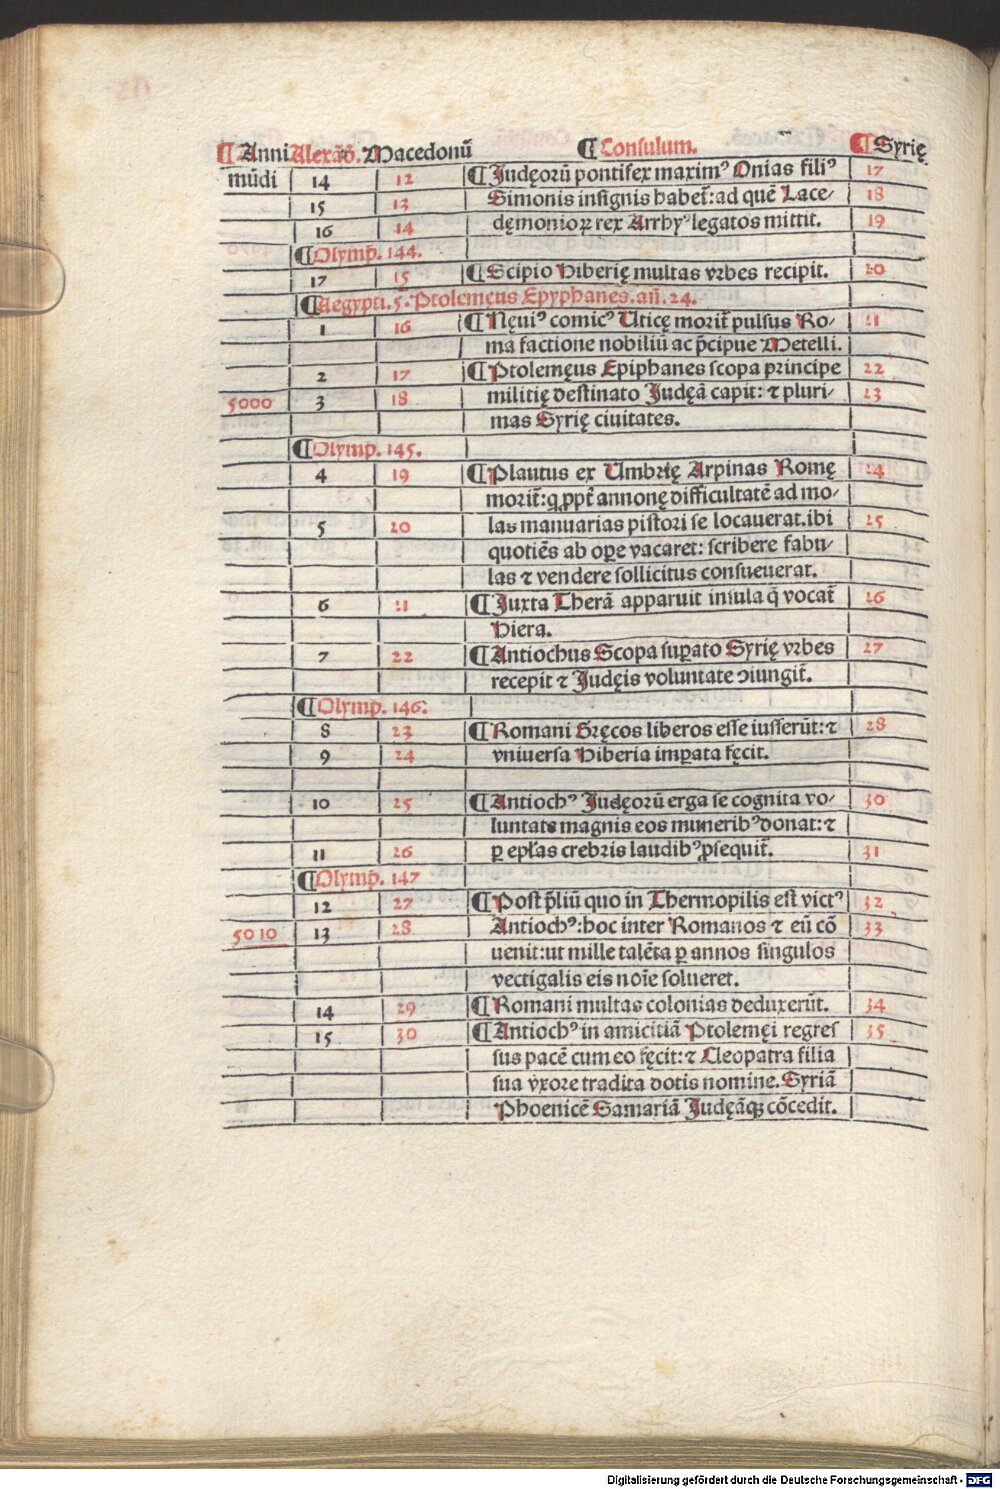 ¶ Anni Alexãd. Macedonũ ¶ Consulum. ¶ Syrię
mũdi 14 12 ¶ Judęorũ pontifex maximꝰ Onias filiꝰ 17
15 13 Simonis insignis habet̃: ad quẽ Lace- 18
16 14 dęmonioꝝ rex Arrhyꝰ legatos mittit. 19
¶ Olymp̃. 144.
17 15 ¶ Scipio Hiberię multas vrbes recipit. 20
¶ Aegypti. 5. Ptolemęus Epyphanes. añ. 24.
1 16 ¶ Nęuiꝰ comicꝰ Uticę morit̃ pulsus Ro- 21
ma factione nobiliũ ac p̃cipue Metelli.
2 17 ¶ Ptolemęus Epiphanes scopa principe 22
5000 3 18 militię destinato Judęã capit: ⁊ pluri- 23
mas Syrię ciuitates.
¶ Olymp̃. 145.
4 19 ¶ Plautus ex Umbrię Arpinas Romę 24
morit̃: q ꝓpt̃ annonę difficultatẽ ad mo-
5 20 las manuarias pistori se locauerat. ibi 25
quotiẽs ab oꝑe vacaret: scribere fabu-
las ⁊ vendere sollicitus consueuerat.
6 21 ¶ Juxta Therã apparuit insula q̃ vocat̃ 26
Hiera.
7 22 ¶ Antiochus Scopa suꝑato Syrię vrbes 27
recepit ⁊ Judęis voluntate ↄiungit̃.
¶ Olymp̃. 146.
8 23 ¶ Romani Gręcos liberos esse iusserũt: ⁊ 28
9 24 vniuersa Hiberia imꝑata fęcit.
10 25 ¶ Antiochꝰ Judęorũ erga se cognita vo- 30
luntate magnis eos muneribꝰ donat: ⁊
11 26 ꝑ ep̃las crebris laudibꝰ ꝓsequit̃. 31
¶ Olymp̃. 147
12 27 ¶ Post p̃liũ quo in Thermopilis est victꝰ 32
5010 13 28 Antiochꝰ: hoc inter Romanos ⁊ eũ cõ 33
uenit: ut mille talẽta ꝑ annos singulos
vectigalis eis noĩe solueret.
14 29 ¶ Romani multas colonias deduxerũt. 34
15 30 ¶ Antiochꝰ in amicitiã Ptolemęi regres 35
sus pacẽ cum eo fęcit: ⁊ Cleopatra filia
sua vxore tradita dotis nomine. Syriã
Phoenicẽ Samariã Judęãqꝫ cõcedit.
Digitalisierung gefördert durch die Deutsche Forschungsgemeinschaft - DFG